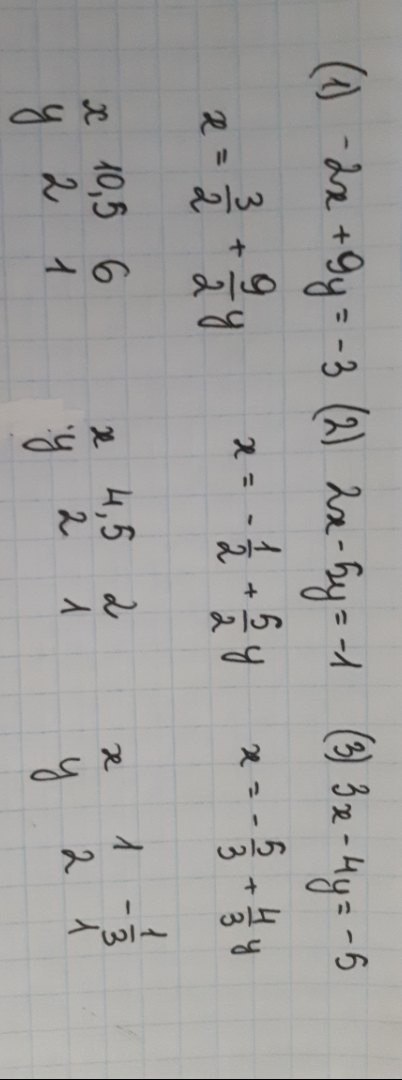 (1) -2x + 9y = -3 (2) 2x - 5y = -1 (3) 3x - 4y = -5
x = 3/2 + 9/2 y x = -1/2 + 5/2 y x = -5/3 + 4/3 y
x 10,5 6 x 4,5 2 x 1 -1/3
y 2 1 y 2 1 y 2 1